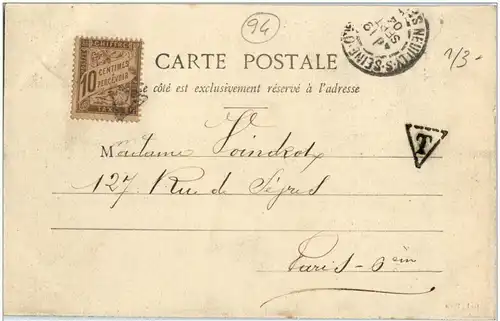 94
1/3-
CHIFFRE
10
CENTIMES
A
PERCEVOIR
TAXE
NEUILLY-S-SEINE
CARTE POSTALE
Ce côté est exclusivement réservé à l'adresse
T
Madame Voindrot
127 Rue de Sèvres
Paris-6èm